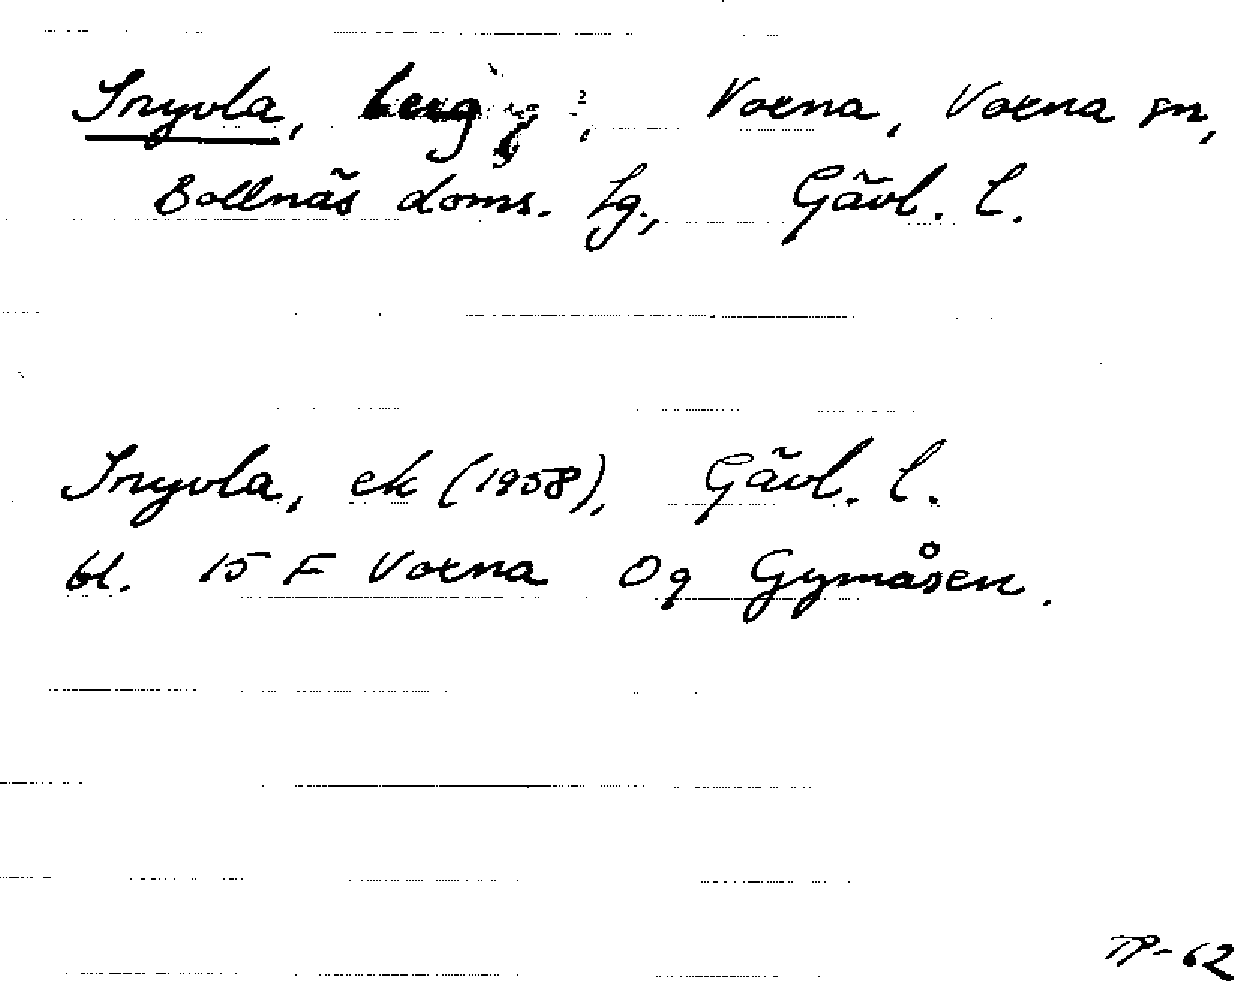 Snyvla, berg, Voxna, Voxna sn,
Bollnäs doms. hg., Gävl. l.
Snyvla, ek (1958), Gävl. l.
bl. 15 F Voxna 0g Gymåsen.
TP-62